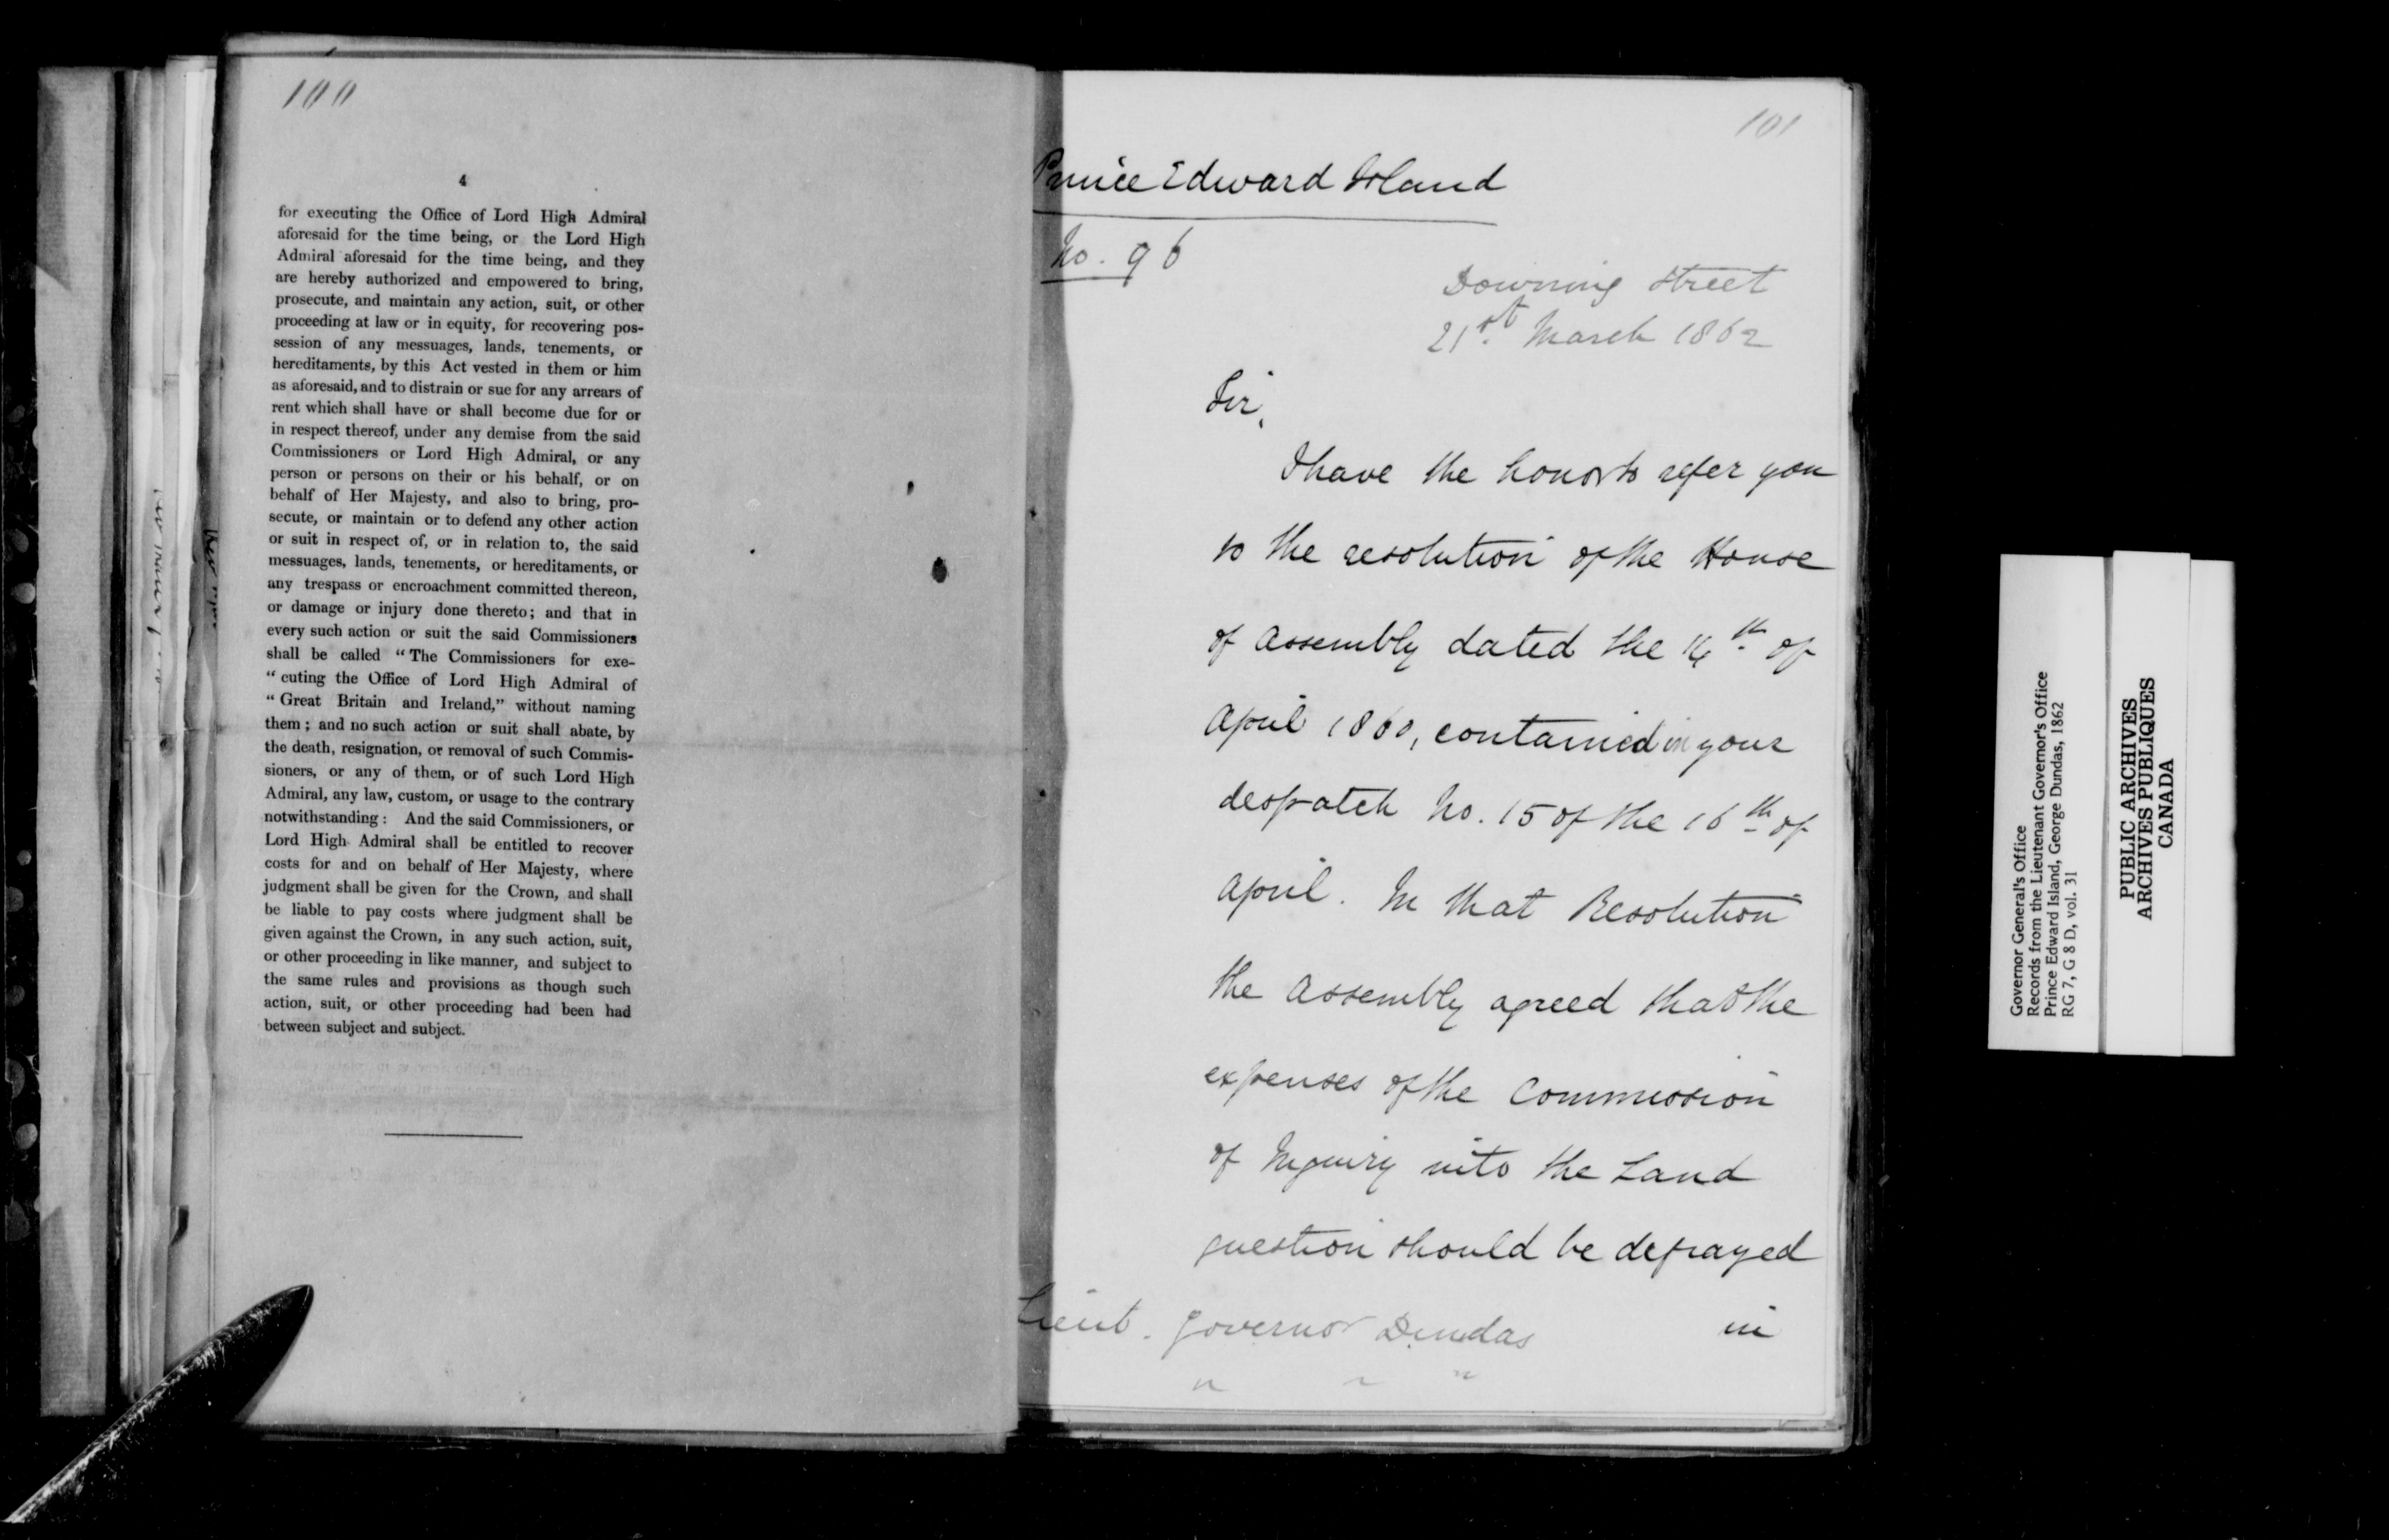 100
4
for executing the Office of Lord High Admiral
aforesaid for the time being, or the Lord High
Admiral aforesaid for the time being, and they
are hereby authorized and empowered to bring,
prosecute, and maintain any action, suit, or other
proceeding at law or in equity, for recovering pos-
session of any messuages, lands, tenements, or
hereditaments, by this Act vested in them or him
as aforesaid, and to distrain or sue for any arrears of
rent which shall have or shall become due for or
in respect thereof, under any demise from the said
Commissioners or Lord High Admiral, or any
person or persons on their or his behalf, or on
behalf of Her Majesty, and also to bring, pro-
secute, or maintain or to defend any other action
or suit in respect of, or in relation to, the said
messuages, lands, tenements, or hereditaments, or
any trespass or encroachment committed thereon,
or damage or injury done thereto; and that in
every such action or suit the said Commissioners
shall be called "The Commissioners for exe-
"cuting the Office of Lord High Admiral of
"Great Britain and Ireland," without naming
them; and no such action or suit shall abate, by
the death, resignation, or removal of such Commis-
sioners, or any of them, or of such Lord High
Admiral, any law, custom, or usage to the contrary
notwithstanding: And the said Commissioners, or
Lord High Admiral shall be entitled to recover
costs for and on behalf of Her Majesty, where
judgment shall be given for the Crown, and shall
be liable to pay costs where judgment shall be
given against the Crown, in any such action, suit,
or other proceeding in like manner, and subject to
the same rules and provisions as though such
action, suit, or other proceeding had been had
between subject and subject.
101
Prince Edward Island
No. 96
Downing Street
21st. March 1862
Sir,
I have the honor to refer you
to the resolution of the House
of Assembly dated the 14th of
April 1860, contained in your
despatch No. 15 of the 16th of
April. In that Resolution
the Assembly agreed that the
expenses of the Commission
of Inquiry into the Land
question should be defrayed
in
Lieut. Governor Dundas
Governor General's Office
Records from the Lieutenant Governor's Office
Prince Edward Island, George Dundas, 1862
RG 7, G 8 D, vol. 31
PUBLIC ARCHIVES
ARCHIVES PUBLIQUES
CANADA